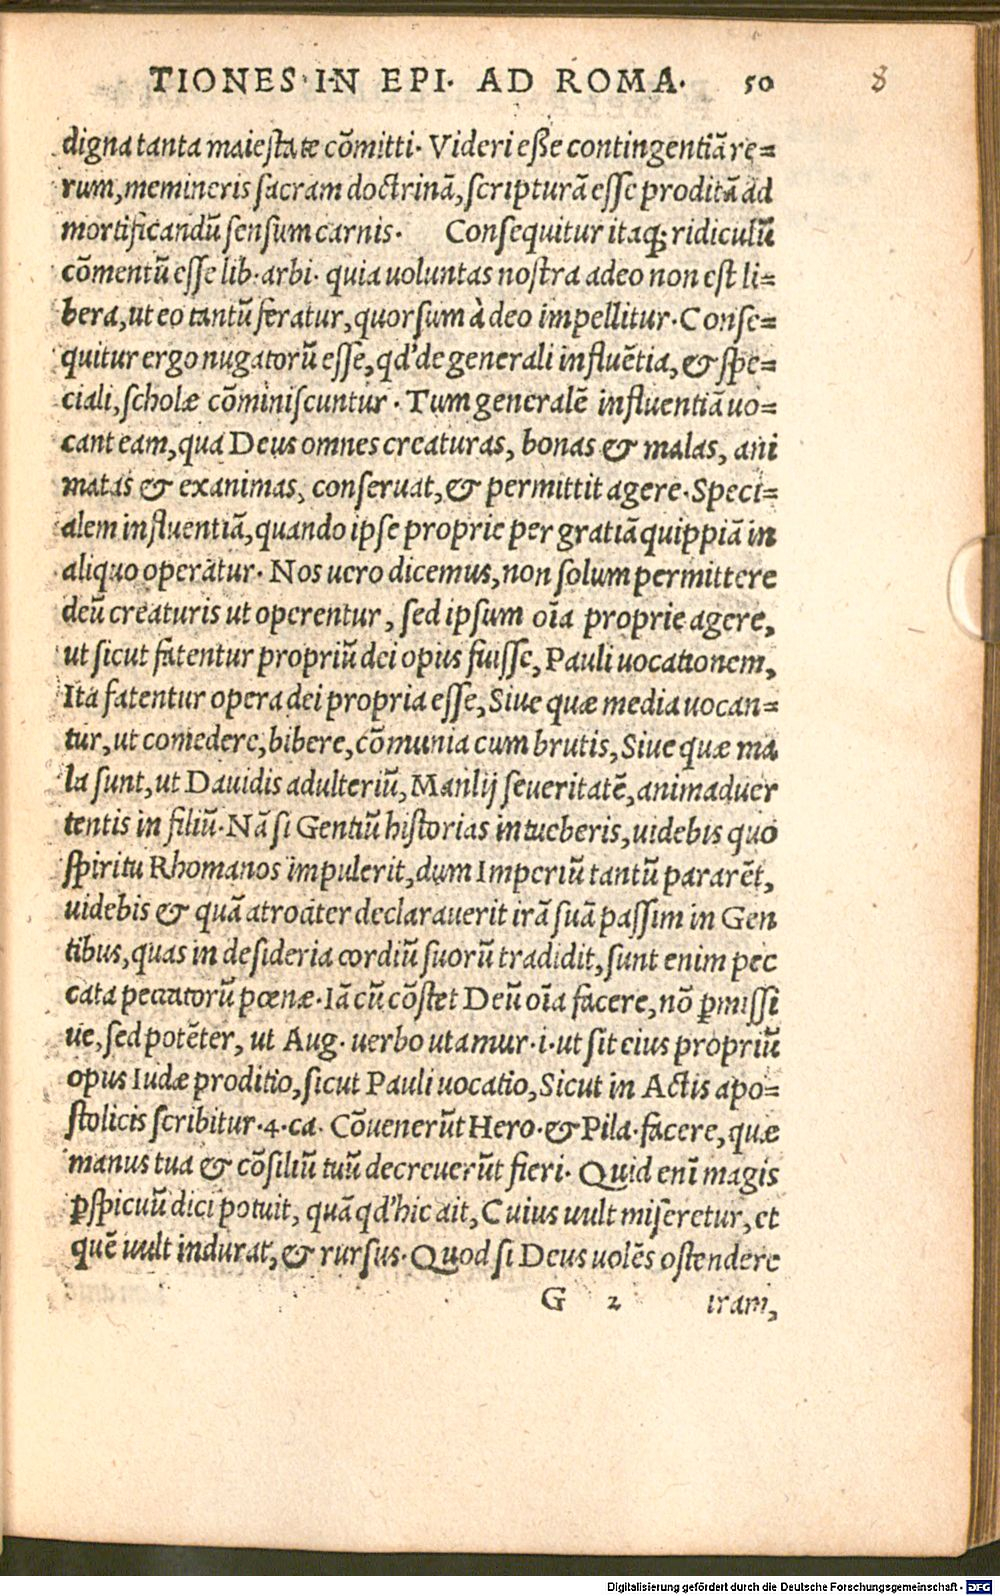 TIONES·IN EPI· AD ROMA· 50
8
digna tanta maiestate cōmitti· Videri eße contingentiā re=
rum, memineris sacram doctrinā, scripturā esse proditā ad
mortificandū sensum carnis· Consequitur itaq; ridiculū
cōmentū esse lib·arbi· quia uoluntas nostra adeo non est li=
bera, ut eo tantū feratur, quorsum à deo impellitur·Conse=
quitur ergo nugatorū esse, qd' de generali influētia, & spe=
ciali, scholæ cōminiscuntur· Tum generalē influentiā uo=
cant eam, qua Deus omnes creaturas, bonas & malas, ani
matas & exanimas, conseruat, & permittit agere·Speci=
alem influentiā, quando ipse proprie per gratiā quippiā in
aliquo operātur· Nos uero dicemus, non solum permittere
deū creaturis ut operentur, sed ipsum oīa proprie agere,
ut sicut fatentur propriū dei opus fuisse, Pauli uocationem,
Ita fatentur opera dei propria esse, Siue quæ media uocan=
tur, ut comedere, bibere, cōmunia cum brutis, Siue quæ ma
la sunt, ut Dauidis adulteriū, Manlij seueritatē, animaduer
tentis in filiū·Nā si Gentiū historias intueberis, uidebis quo
spiritu Rhomanos impulerit, dum Imperiū tantū pararēt,
uidebis & quā atrociter declarauerit irā suā passim in Gen
tibus, quas in desideria cordiū suorū tradidit, sunt enim pec
cata peccatorū pœnæ·Iā cū cōstet Deū oīa facere, nō ꝑmissi
ue, sed potēter, ut Aug· uerbo utamur·i·ut sit eius propriū
opus Iudæ proditio, sicut Pauli uocatio, Sicut in Actis apo=
stolicis scribitur·4·ca· Cōuenerūt Hero·& Pila·facere, quæ
manus tua & cōsiliū tuū decreuerūt fieri· Quid enī magis
ꝑspicuū dici potuit, quā qd' hic ait, Cuius uult miseretur, et
quē uult indurat, & rursus·Quod si Deus uolēs ostendere
G 2 iram,
Digitalisierung gefördert durch die Deutsche Forschungsgemeinschaft - DFG